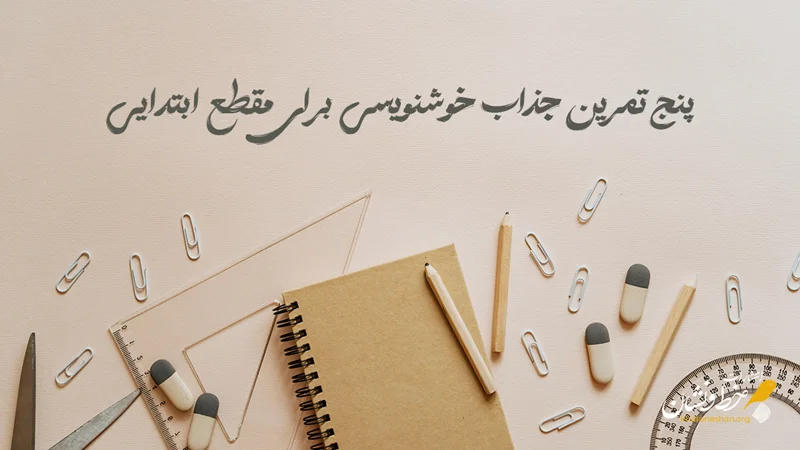 پنج تمرین جذاب خوشنویسی برای مقطع ابتدایی
خط و نشان